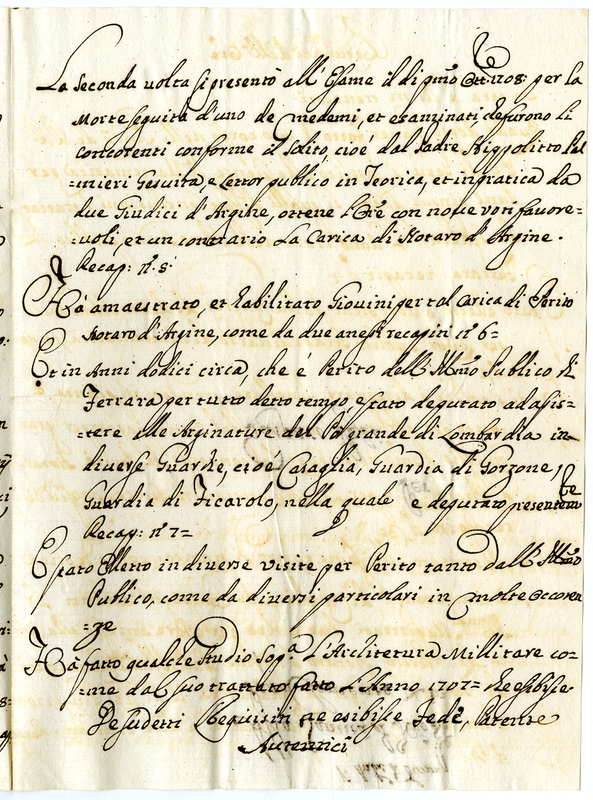 La Seconda uolta si presentò all'Esame il di pmo Ott: 1708: per la
Morte seguita d'uno de medemi, et esaminati che furono li
concorenti conforme il Solito, cioè dal Padre Hippolitto Pal
=mieri Gesuita, e Lettor publico in Teorica, et in pratica da
due Giudici d'Argine, ottene l'Ore con noue uoti fauore=
=uoli, et un contrario La Carica di Notaro d'Argine.
Recap: no. 5:
Hà amaestrato, et habilitato Giouini per tal Carica di Perito
Notaro d'Argine, come da due anessi recapiti no 6=
Et in Anni dodici circa, che è Perito dell' Illmo Publico di
Ferrara per tutto detto tempo è stato deputato ad asis=
=tere alle Arginature del Pò grande di Lombardia in
diuerse Guardie, cioè Casaglia, Guardia di Gorzone,
Guardia di Ficarolo, nella quale è deputato presentemte
Recap: no. 7=
È stato Eletto in diuerse uisite per Perito tanto dall' Illmo
Publico, come da diuersi particolari in molte occoren
=ze
Hà fatto qualche studio sopa. l'Architetura Millitare co=
=me dal suo trattato fatto l'Anno 1707= che esibisse
De sudetti Requisiti ne esibisse Fede, Patente
Autentici